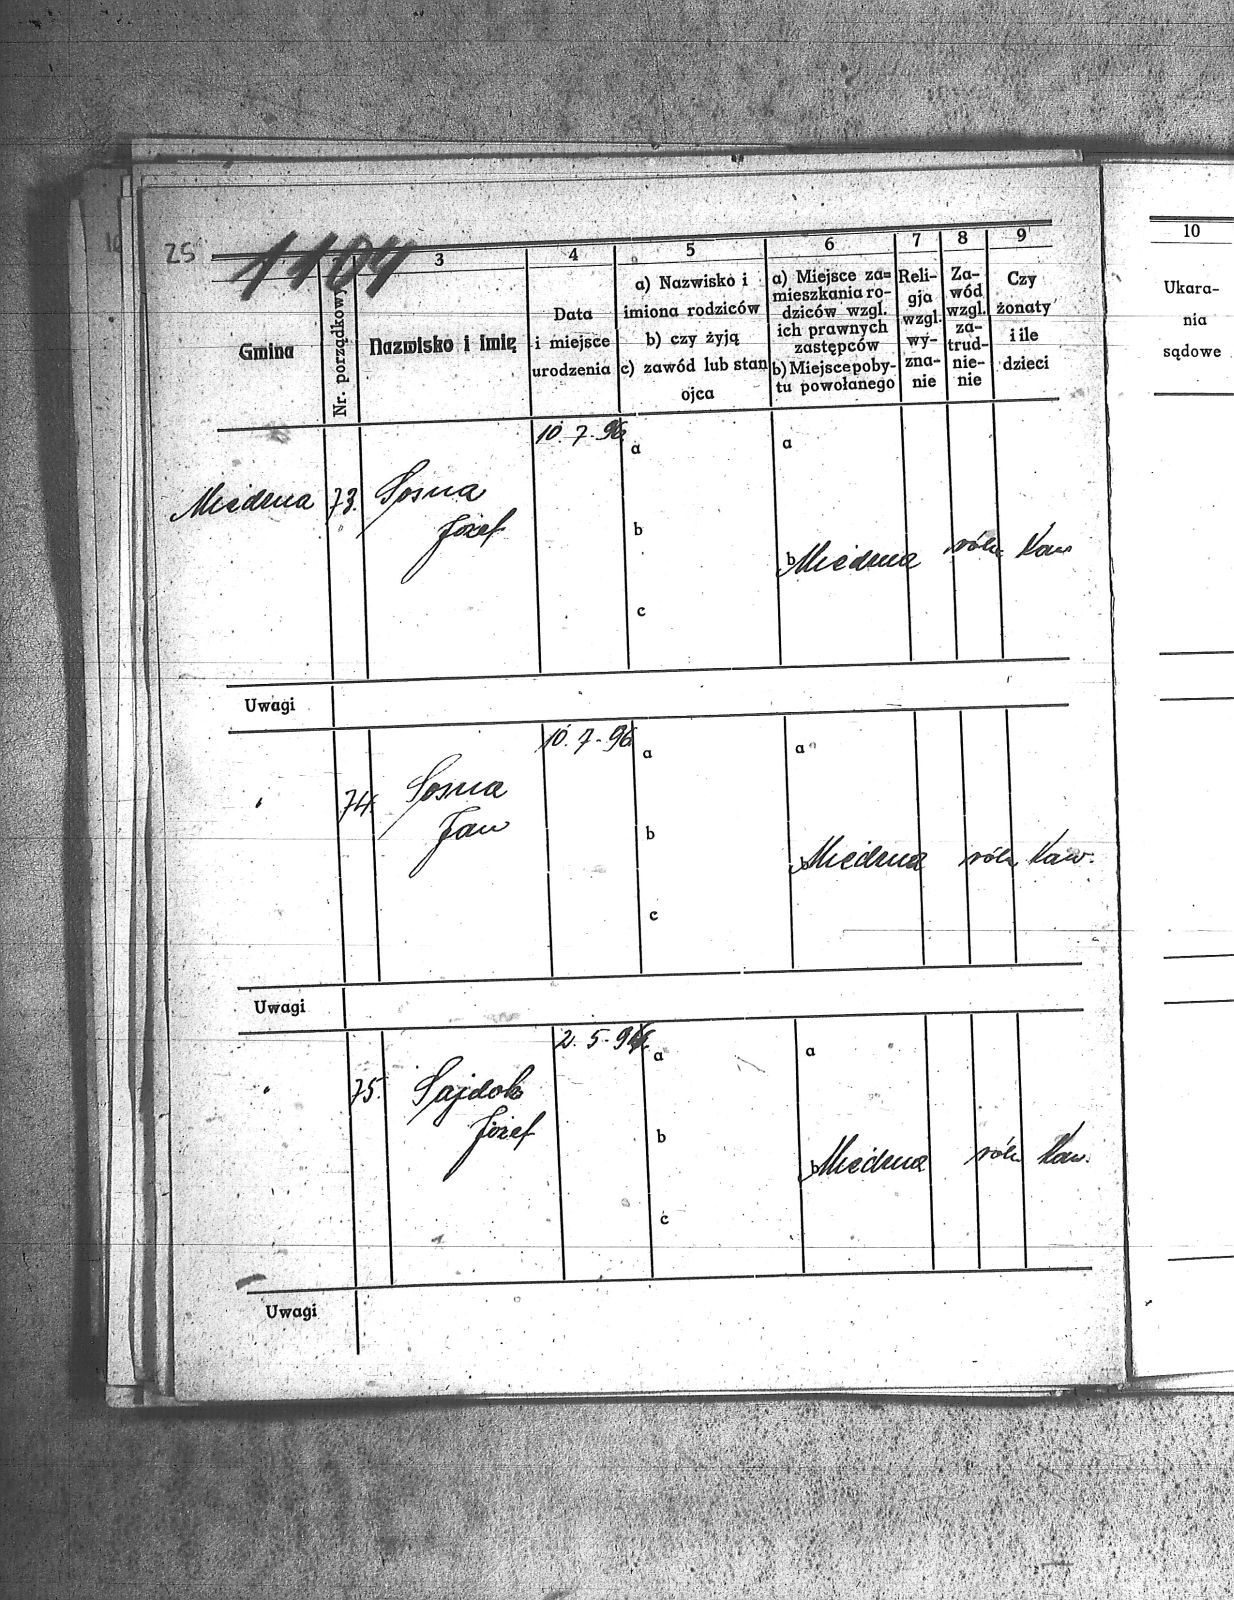 25
1104
3
4
5
6
7
8
9
10
Gmina
Nr. porządkowy
Nazwisko i imię
Data
i miejsce
urodzenia
a) Nazwisko i
imiona rodziców
b) czy żyją
c) zawód lub stan
ojca
a) Miejsce za=
mieszkania ro-
dziców wzgl.
ich prawnych
zastępców
b) Miejsce poby-
tu powołanego
Reli-
gja
wzgl.
wy-
zna-
nie
Za-
wód
wzgl.
za-
trud-
nie-
nie
Czy
żonaty
i ile
dzieci
Ukara-
nia
sądowe
10. 7. 96
a
a
Miedzna 73. Sosna
Józef
b
b Miedzna roln Kaw
c
Uwagi
10. 7. 96
a
a
74. Sosna
Jan
b
b Miedzna roln Kaw.
c
Uwagi
2. 5.
a
a
75. Sajdok
Józef
b
b Miedzna roln Kaw.
c
Uwagi